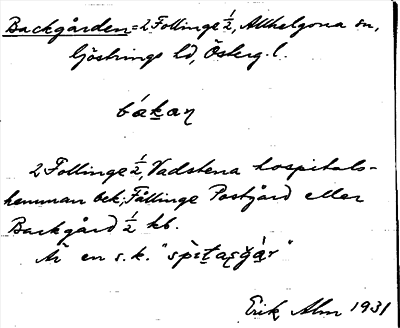 Backgården = 2 Follinge ½, Allhelgona sn,
Göstrings hd, Österg. l.
bákaŋ
2 Follinge ½, Vadstena hospitals-
hemman bek; Fållinge Postgård eller
Backgård ½ hb.
Är en s.k. "
Erik Alm 1931